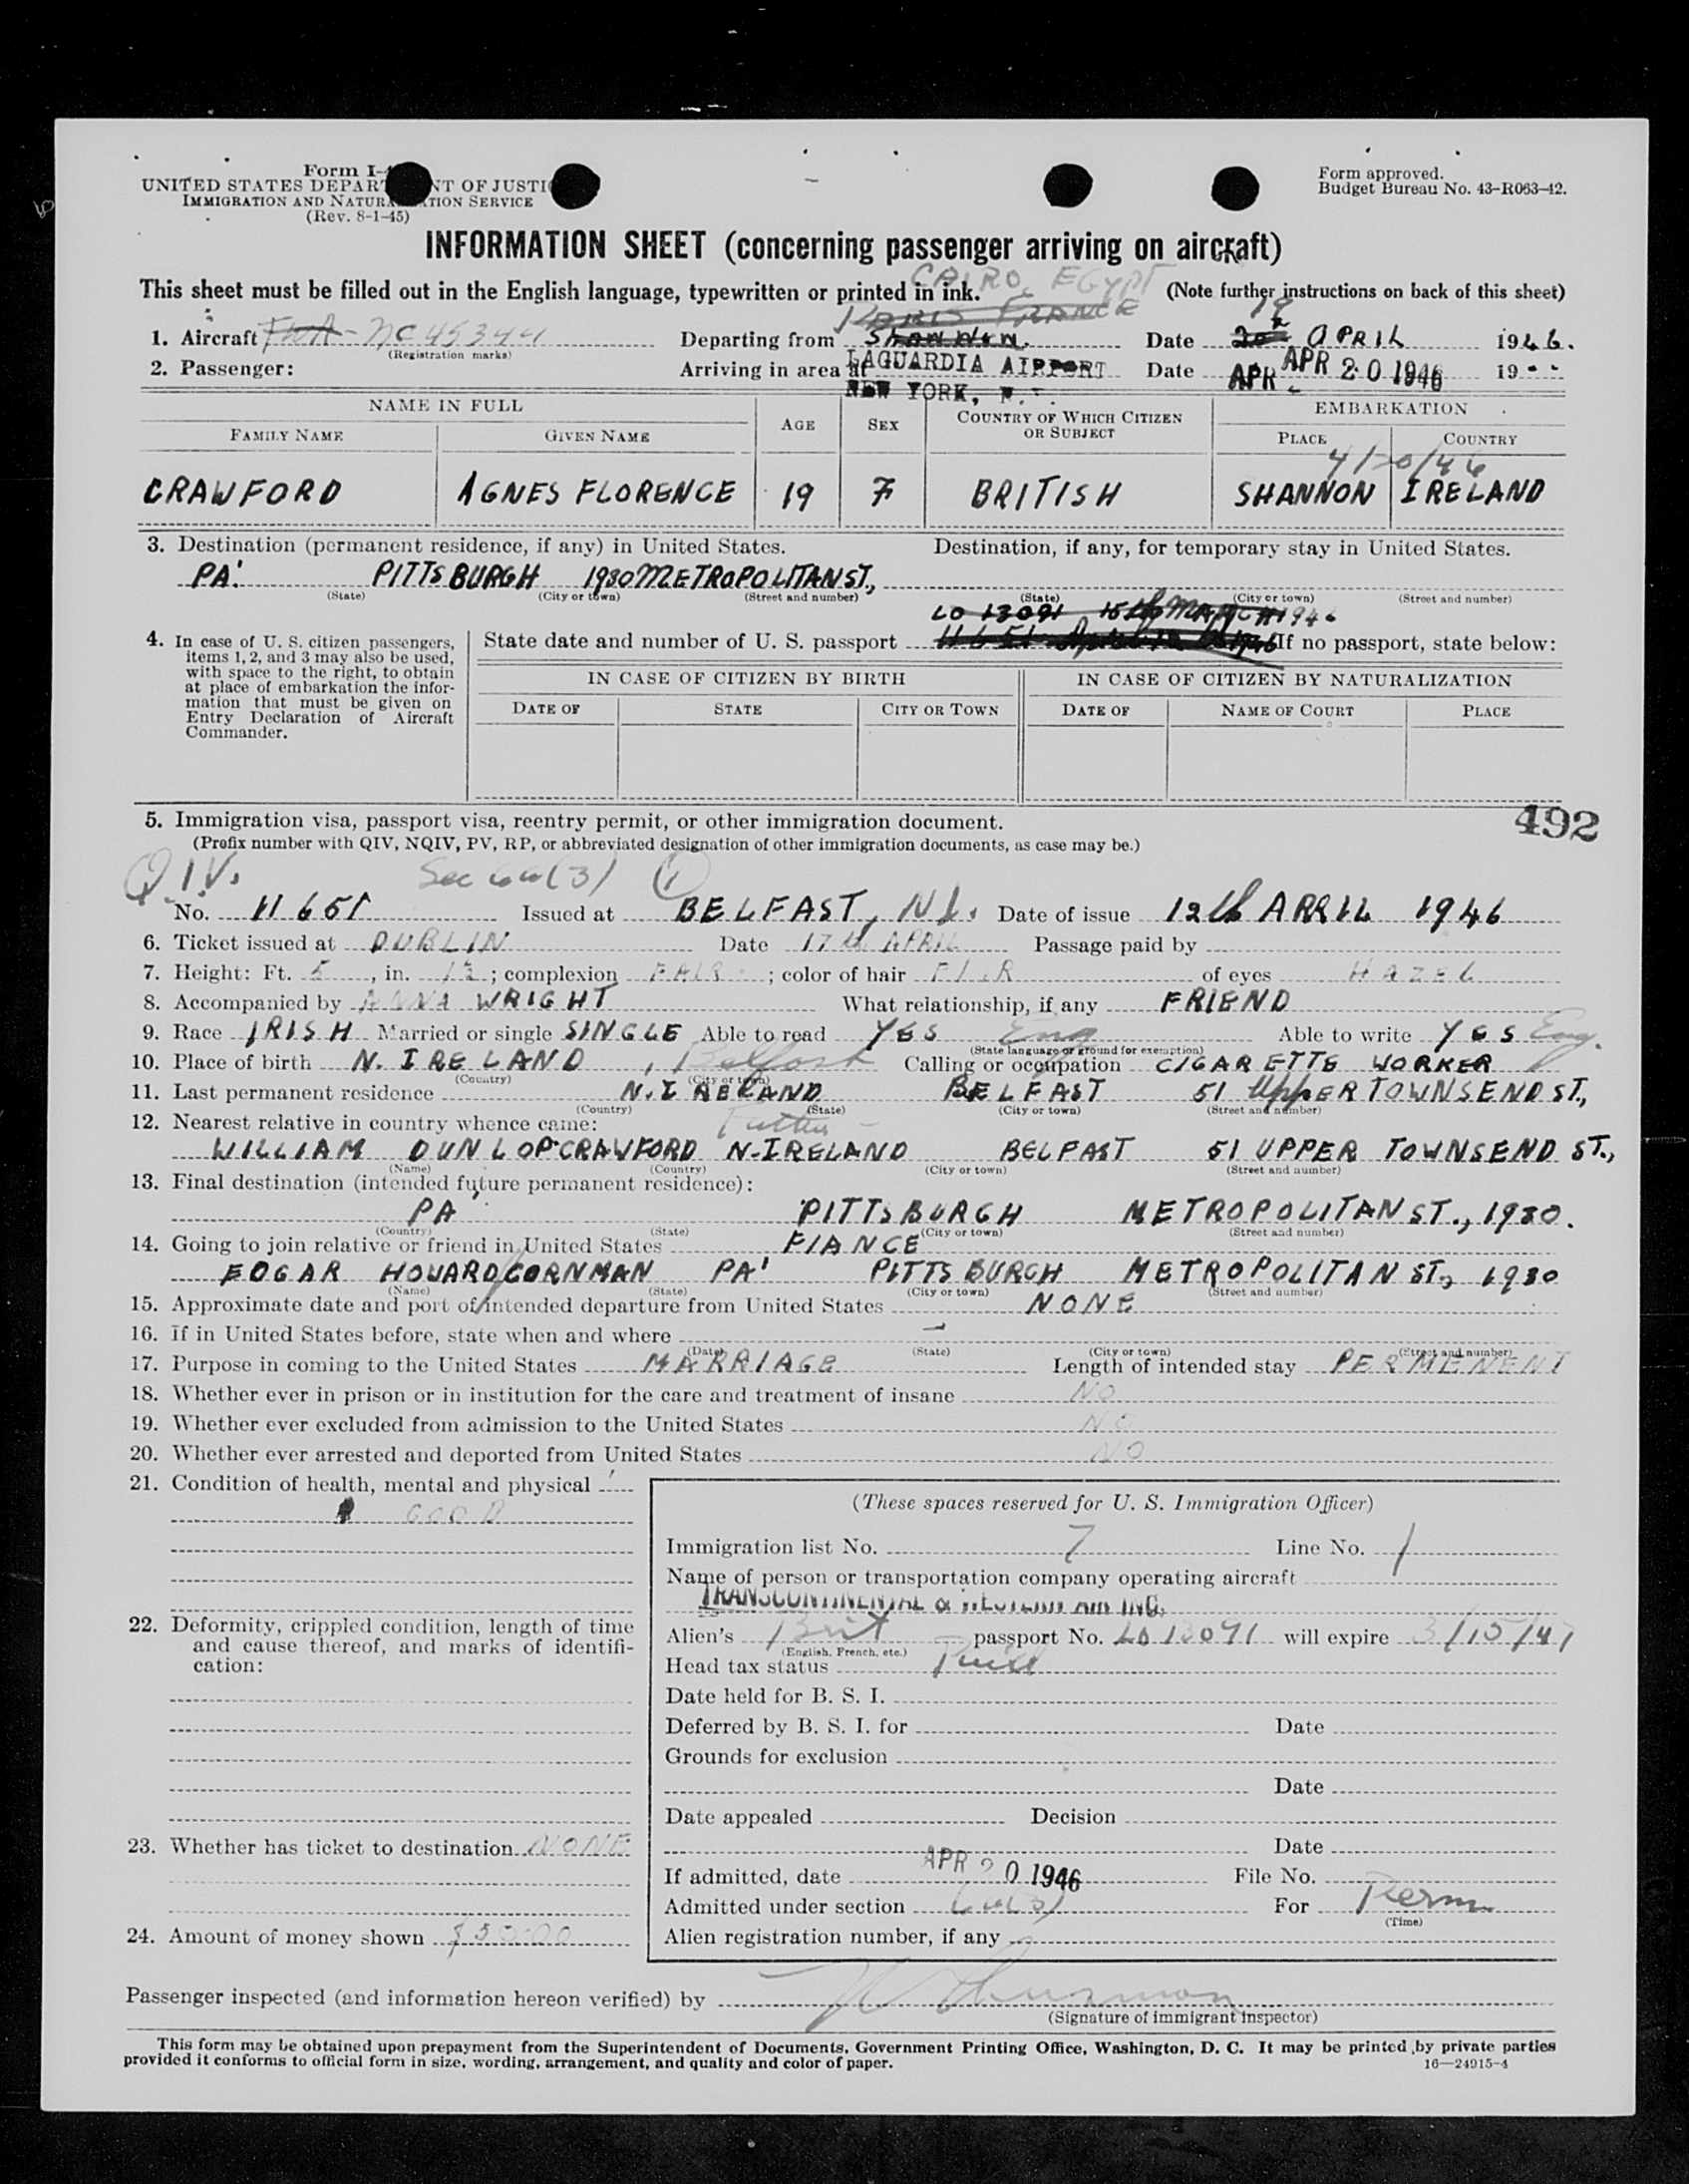 Form I-
UNITED STATES DEPARTMENT OF JUSTICE
IMMIGRATION AND NATURALIZATION SERVICE
(Rev. 8-1-45)
Form approved.
Budget Bureau No. 43-R063-42.
INFORMATION SHEET (concerning passenger arriving on aircraft)
CAIRO, EGYPT
This sheet must be filled out in the English language, typewritten or printed in ink. (Note further instructions on back of this sheet)
PARIS FRANCE 19
1. Aircraft TWA - NC 45344 Departing from SHANNON. Date 20th APRIL 1946.
(Registration marks)
2. Passenger: Arriving in area at LAGUARDIA AIRPORT Date APR APR 20 1946 19
NEW YORK, N.
NAME IN FULL AGE SEX COUNTRY OF WHICH CITIZEN OR SUBJECT EMBARKATION
FAMILY NAME GIVEN NAME PLACE COUNTRY
4/20/46
CRAWFORD AGNES FLORENCE 19 F BRITISH SHANNON IRELAND
3. Destination (permanent residence, if any) in United States. Destination, if any, for temporary stay in United States.
PA. PITTSBURGH 1980 METROPOLITAN ST.,
(State) (City or town) (Street and number) (State) (City or town) (Street and number)
LO 13091 15th MARCH 1946
4. In case of U. S. citizen passengers, items 1, 2, and 3 may also be used, with space to the right, to obtain at place of embarkation the information that must be given on Entry Declaration of Aircraft Commander.
State date and number of U. S. passport 11651 April 12 1946 If no passport, state below:
IN CASE OF CITIZEN BY BIRTH IN CASE OF CITIZEN BY NATURALIZATION
DATE OF STATE CITY OR TOWN DATE OF NAME OF COURT PLACE
492
5. Immigration visa, passport visa, reentry permit, or other immigration document.
(Prefix number with QIV, NQIV, PV, RP, or abbreviated designation of other immigration documents, as case may be.)
Q.I.V. Sec 6a(3) (1)
No. 11651 Issued at BELFAST, N.I. Date of issue 12th APRIL 1946
6. Ticket issued at DUBLIN Date 17th APRIL Passage paid by
7. Height: Ft. 5, in. ; complexion FAIR ; color of hair of eyes HAZEL
8. Accompanied by ANNA WRIGHT What relationship, if any FRIEND
9. Race IRISH Married or single SINGLE Able to read YES Eng Able to write YES Eng.
(State language or ground for exemption)
10. Place of birth N. IRELAND, Belfast Calling or occupation CIGARETTE WORKER
(Country) (City or town)
11. Last permanent residence N. IRELAND BELFAST 51 UPPER TOWNSEND ST.,
(Country) (State) (City or town) (Street and number)
12. Nearest relative in country whence came: Father
WILLIAM DUNLOP CRAWFORD N-IRELAND BELFAST 51 UPPER TOWNSEND ST.,
(Name) (Country) (City or town) (Street and number)
13. Final destination (intended future permanent residence):
PA' PITTSBURGH METROPOLITAN ST., 1980.
(Country) (State) (City or town) (Street and number)
14. Going to join relative or friend in United States FIANCE
EDGAR HOWARD CORNMAN PA' PITTSBURGH METROPOLITAN ST., 1980
(Name) (State) (City or town) (Street and number)
15. Approximate date and port of intended departure from United States NONE
16. If in United States before, state when and where —
(Date) (State) (City or town) (Street and number)
17. Purpose in coming to the United States MARRIAGE Length of intended stay PERMENENT
18. Whether ever in prison or in institution for the care and treatment of insane NO
19. Whether ever excluded from admission to the United States NO
20. Whether ever arrested and deported from United States NO
21. Condition of health, mental and physical
GOOD
22. Deformity, crippled condition, length of time and cause thereof, and marks of identification:
23. Whether has ticket to destination NONE
24. Amount of money shown
(These spaces reserved for U. S. Immigration Officer)
Immigration list No. 7 Line No. 1
Name of person or transportation company operating aircraft
TRANSCONTINENTAL & WESTERN AIR INC.
Alien's Brit passport No. LO 13091 will expire 3/15/47
(English, French, etc.)
Head tax status Paid
Date held for B. S. I.
Deferred by B. S. I. for Date
Grounds for exclusion
Date
Date appealed Decision
Date
If admitted, date APR 20 1946 File No.
Admitted under section 6a(3) For Perm
(Time)
Alien registration number, if any
Passenger inspected (and information hereon verified) by
(Signature of immigrant inspector)
This form may be obtained upon prepayment from the Superintendent of Documents, Government Printing Office, Washington, D. C. It may be printed by private parties
provided it conforms to official form in size, wording, arrangement, and quality and color of paper. 16—24915-4